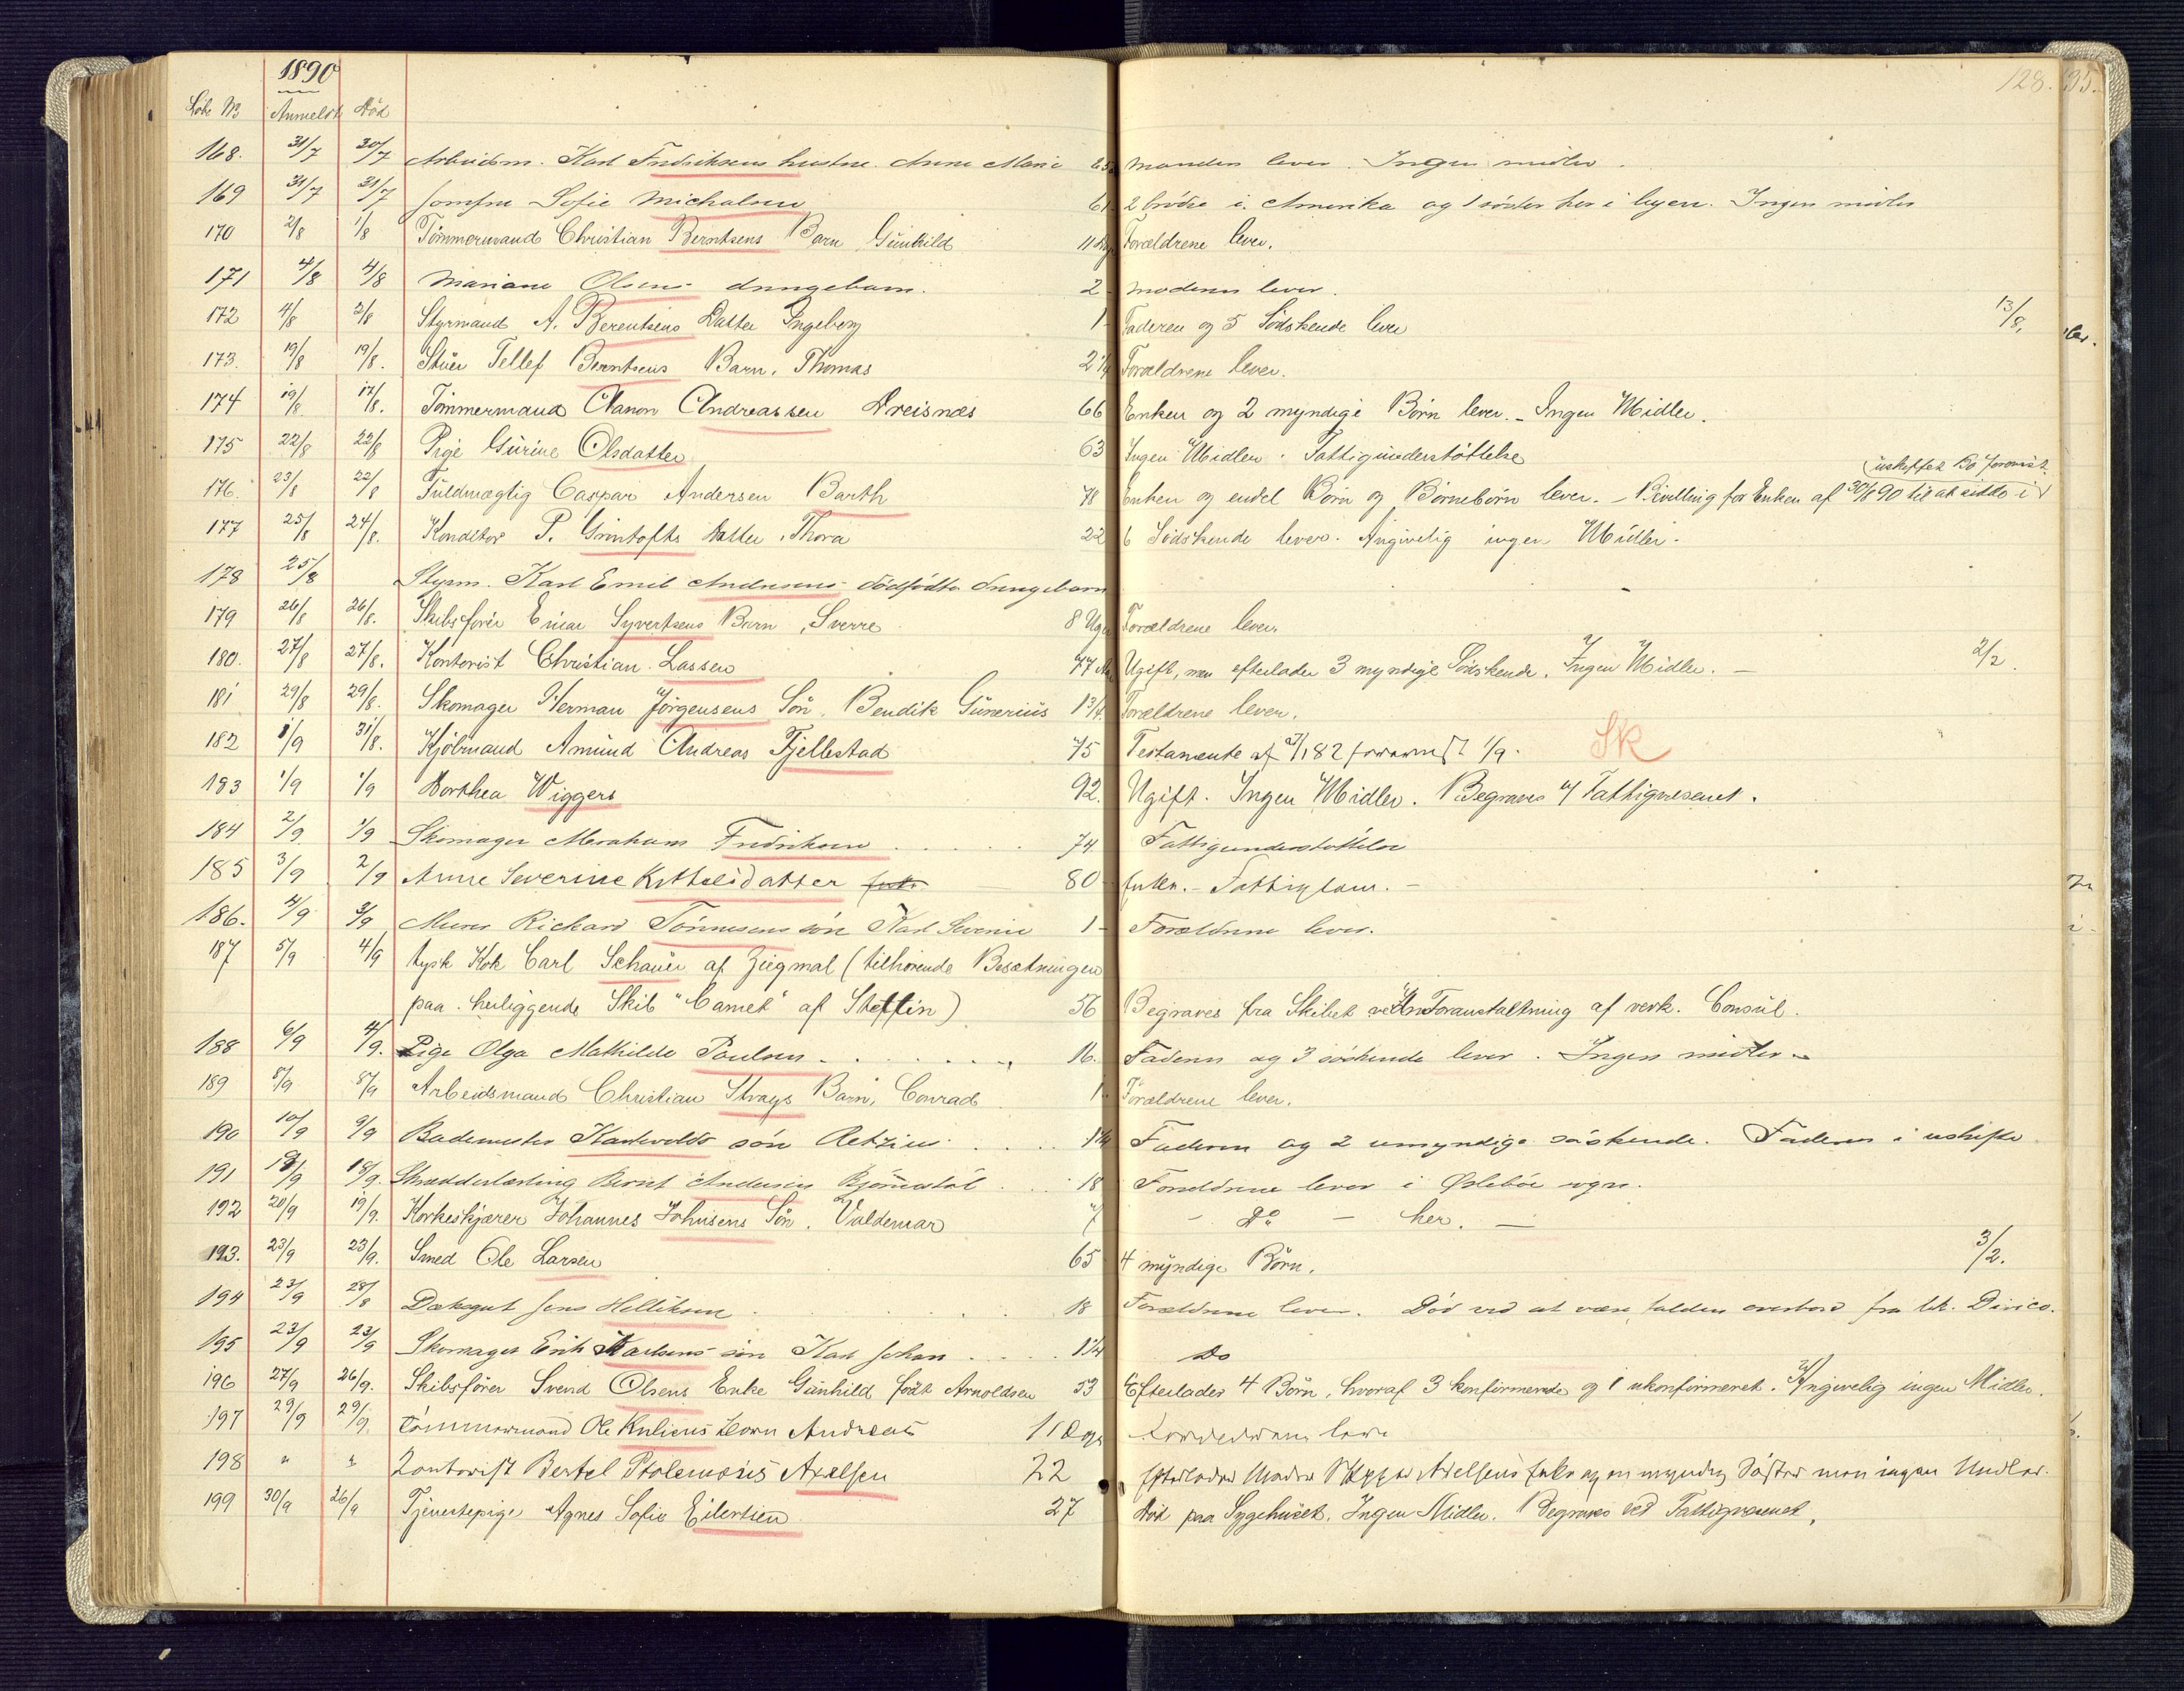 1890
128.
95.
Løbe No Anmeldt Død
168. 31/7 30/7 Arbeidsm. Karl Fredriksens hustru Anne Marie 65 Manden lever. Ingen midler.
169 31/7 31/7 Jomfru Sofie Michalsen 61 2 brödre i Amerika og 1 söster her i byen. Ingen midler
170 2/8 1/8 Tömmermand Christian Berntsens Barn Günhild 11 Dage Forældrene lever.
171 4/8 4/8 Mariane Olsens drengebarn. 2 moderen lever.
172 4/8 2/8 Styrmand A. Berentsens Datter Ingeborg 1 Faderen og 5 Södskende lever 13/8,
173. 19/8 19/8. Stuer Tellef Berentsens Barn, Thomas 2 1/4 Forældrene lever.
174 19/8 17/8. Tömmermand Aanon Andreassen Dreisnæs 66 Enken og 2 myndige Börn lever. - Ingen Midler.
175 22/8 22/8 Pige Gürine Olsdatter 63 Ingen Midler. Fattigunderstöttelse
176. 23/8 22/8 Fuldmægtig Caspar Andersen Barth 78 Enken og endel Börn og Börnebörn lever. - Bevilling for Enken af 30/8 90 til at sidde i uskiftet Bo forevist.
177 25/8 24/8. Konditor P. Grimtofts Datter, Thora 22 6 Södskende lever. Angivelig ingen Midler.
178 25/8 Styrm. Karl Emil Andersens dödfödte drengebarn
179 26/8 26/8. Skibsförer Einar Syvertsens Barn, Sverre 8 Uger Forældrene lever.
180. 27/8 27/8. Kontorist Christian Lassen 77 Ugift, men efterlader 3 myndige Södskende. Ingen Midler. - 2/2.
181 29/8 29/8. Skomager Herman Jörgensens Sön, Bendik Günerius 1 3/4. Forældrene lever.
182 1/9 31/8. Kjöbmand Amünd Andreas Fjellestad 75 Testamente af 82 forevist 1/9. Sk
183 1/9 1/9 Dorthea Wiggers 92. Ugift. Ingen Midler. Begraves af Fattigvæsenet.
184 2/9 1/9 Skomager Abraham Fredriksen 74 Fattigunderstöttelse
185 3/9 2/9 Anne Severine Kittelsdatter 80 Enke. - Fattiglem. -
186. 4/9 3/9 Murer Rickard Tönnesens sön Karl Severin 1 - Forældrene lever.
187 5/9 4/9 tysk Kok Carl Schauer af Ziegmal (tilhörende Besætningen
paa herliggende Skib "Comet" af Stettin) 56 Begraves fra Skibet ved Foranstaltning af vedk. Consül.
188 6/9 4/9. Pige Olga Mathilde Paulsen 16. Faderen og 3 söskende lever. Ingen midler
189 8/9 8/9 Arbeidsmand Christian Strays Barn, Conrad 1 Forældrene lever.
190 10/9 9/9 Bademester sön Retzius 1 1/4 Faderen og 2 umyndige söskende. Faderen i uskifte
191 19/9 18/9. Skrædderlærling Bernt Andersen 18 Forældrene lever i Øslebö sogn.
192 20/9 19/9. Korkeskjærer Johannes Johnsens Sön, Valdemar 7 - Do - her. -
193. 23/9 23/9. Smed Ole Larsen 65 4 myndige Börn. 3/2.
194 23/9 28/8 Dæksgut Jens Helliksen 18 Forældrene lever. Död ved at være falden overbord fra
195 23/9 23/9 Skomager Erik Karlsens sön Karl Johan 1 1/4 Do
196 27/9 26/9. Skibsförer Svend Olsens Enke Günhild födt Arnoldsen 53 Efterlader 4 Börn, hvoraf 3 konfirmerede og 1 ukonfirmeret. Angivelig ingen Midler.
197 29/9 29/9. Tömmermand Ole Knlsens barn Andreas 11 Dage Forældrene lever
198 " " Kontorist Bertel Ptolemæus Axelsen 22 Efterlader Moder Skipper Axelsens Enke og en myndig Söster men ingen Midler.
199 30/9 26/9 Tjenestepige Agnes Sofie Eilertsen 27 Död paa Sygehuset. Ingen Midler. Begraves ved Fattigvæsenet.